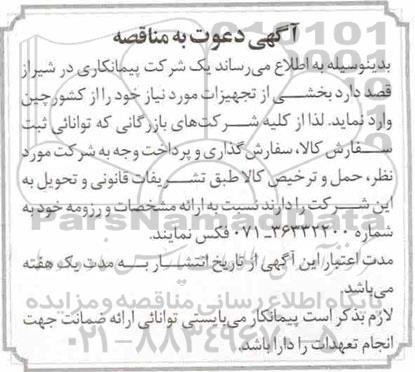 آگهی دعوت به مناقصه
بدینوسیله به اطلاع می‌رساند یک شرکت پیمانکاری در شیراز
قصد دارد بخشی از تجهیزات مورد نیاز خود را از کشور چین
وارد نماید. لذا از کلیه شرکت‌های بازرگانی که توانائی ثبت
سفارش کالا، سفارش گذاری و پرداخت وجه به شرکت مورد
نظر، حمل و ترخیص کالا طبق تشریفات قانونی و تحویل به
این شرکت را دارند نسبت به ارائه مشخصات و رزومه خود به
شماره ۳۶۳۳۲۲۰۰-۰۷۱ فکس نمایند.
مدت اعتبار این آگهی از تاریخ انتشار به مدت یک هفته
می‌باشد.
لازم بذکر است پیمانکار می‌بایستی توانائی ارائه ضمانت جهت
انجام تعهدات را دارا باشد.
ParsNamadData
پایگاه اطلاع رسانی مناقصه و مزایده
۰۲۱-۸۸۳۴۹۶۷۰-۵